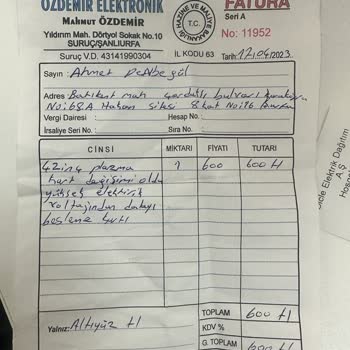 ÖZDEMİR ELEKTRONİK
Mahmut ÖZDEMİR
Yıldırım Mah. Dörtyol Sokak No.10
SURUÇ/ŞANLIURFA
Suruç V.D. 43141990304
HAZİNE VE MALİYE BAKANLIĞI
T.C.
FATURA
Seri A
No: 11952
İL KODU 63
Tarih: 12/04/2023
Sayın : Ahmet
Adres
No:68A Hakan sitesi 8 kat No:16
Vergi Dairesi :
Hesap No.:
İrsaliye Seri No.:
Sıra No.:
CİNSİ
MİKTARI
FİYATI
TUTARI
42 inç plazma
1
600
600 tl
kart değişimi oldu
yüksek elektirik
voltajından dolayı
besleme kartı
Yalnız: Altıyüz tl
TOPLAM
600 tl
KDV %
G. TOPLAM
600 tl
Dicle Elektrik Dağıtım
A.Ş